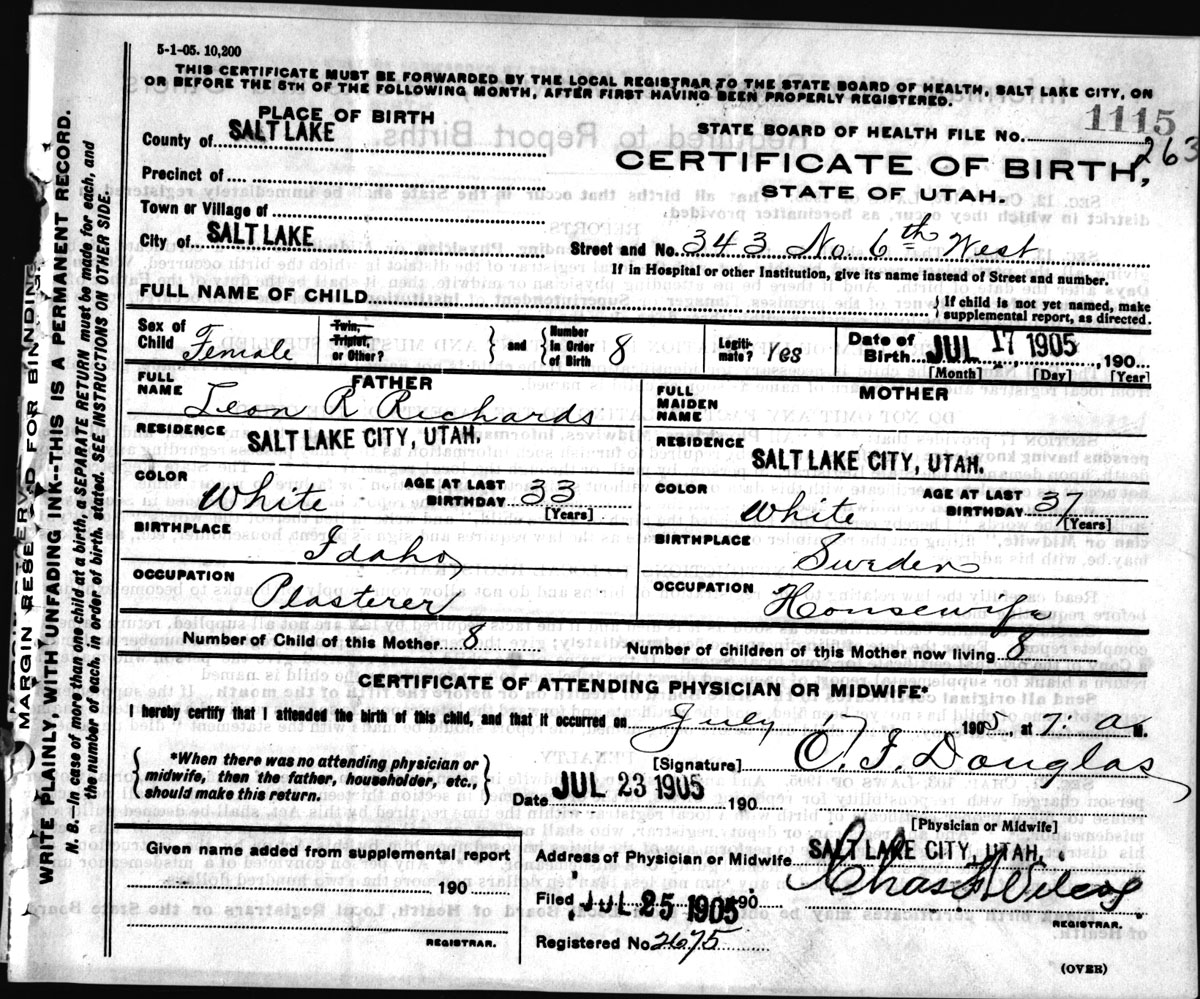 5-1-05. 10,200
THIS CERTIFICATE MUST BE FORWARDED BY THE LOCAL REGISTRAR TO THE STATE BOARD OF HEALTH, SALT LAKE CITY, ON
OR BEFORE THE 5TH OF THE FOLLOWING MONTH, AFTER FIRST HAVING BEEN PROPERLY REGISTERED.
PLACE OF BIRTH
County of SALT LAKE
Precinct of
Town or Village of
City of SALT LAKE
STATE BOARD OF HEALTH FILE NO. 1115
263
CERTIFICATE OF BIRTH,
STATE OF UTAH.
Street and No. 343 No. 6th West
If in Hospital or other Institution, give its name instead of Street and number.
FULL NAME OF CHILD
If child is not yet named, make
supplemental report, as directed.
Sex of Child Female
Twin, Triplet, or Other?
and
Number in Order of Birth 8
Legitimate? Yes
Date of Birth JUL 17 1905, 190
[Month] [Day] [Year]
FATHER
FULL NAME Leon R Richards
RESIDENCE SALT LAKE CITY, UTAH.
COLOR White
AGE AT LAST BIRTHDAY 33
[Years]
BIRTHPLACE Idaho
OCCUPATION Plasterer
MOTHER
FULL MAIDEN NAME
RESIDENCE SALT LAKE CITY, UTAH.
COLOR White
AGE AT LAST BIRTHDAY 37
[Years]
BIRTHPLACE Sweden
OCCUPATION Housewife
Number of Child of this Mother 8
Number of children of this Mother now living 8
CERTIFICATE OF ATTENDING PHYSICIAN OR MIDWIFE*
I hereby certify that I attended the birth of this child, and that it occurred on July 17 1905, at 7: a M.
*When there was no attending physician or
midwife, then the father, householder, etc.,
should make this return.
[Signature] O. F. Douglas
Date JUL 23 1905 190
[Physician or Midwife]
Given name added from supplemental report
190
REGISTRAR.
Address of Physician or Midwife SALT LAKE CITY, UTAH.
Filed JUL 25 1905 190
Chas
REGISTRAR.
Registered No. 2675
(OVER)
MARGIN RESERVED FOR BINDING
WRITE PLAINLY, WITH UNFADING INK--THIS IS A PERMANENT RECORD.
N. B.--In case of more than one child at a birth, a SEPARATE RETURN must be made for each, and
the number of each, in order of birth, stated. SEE INSTRUCTIONS ON OTHER SIDE.